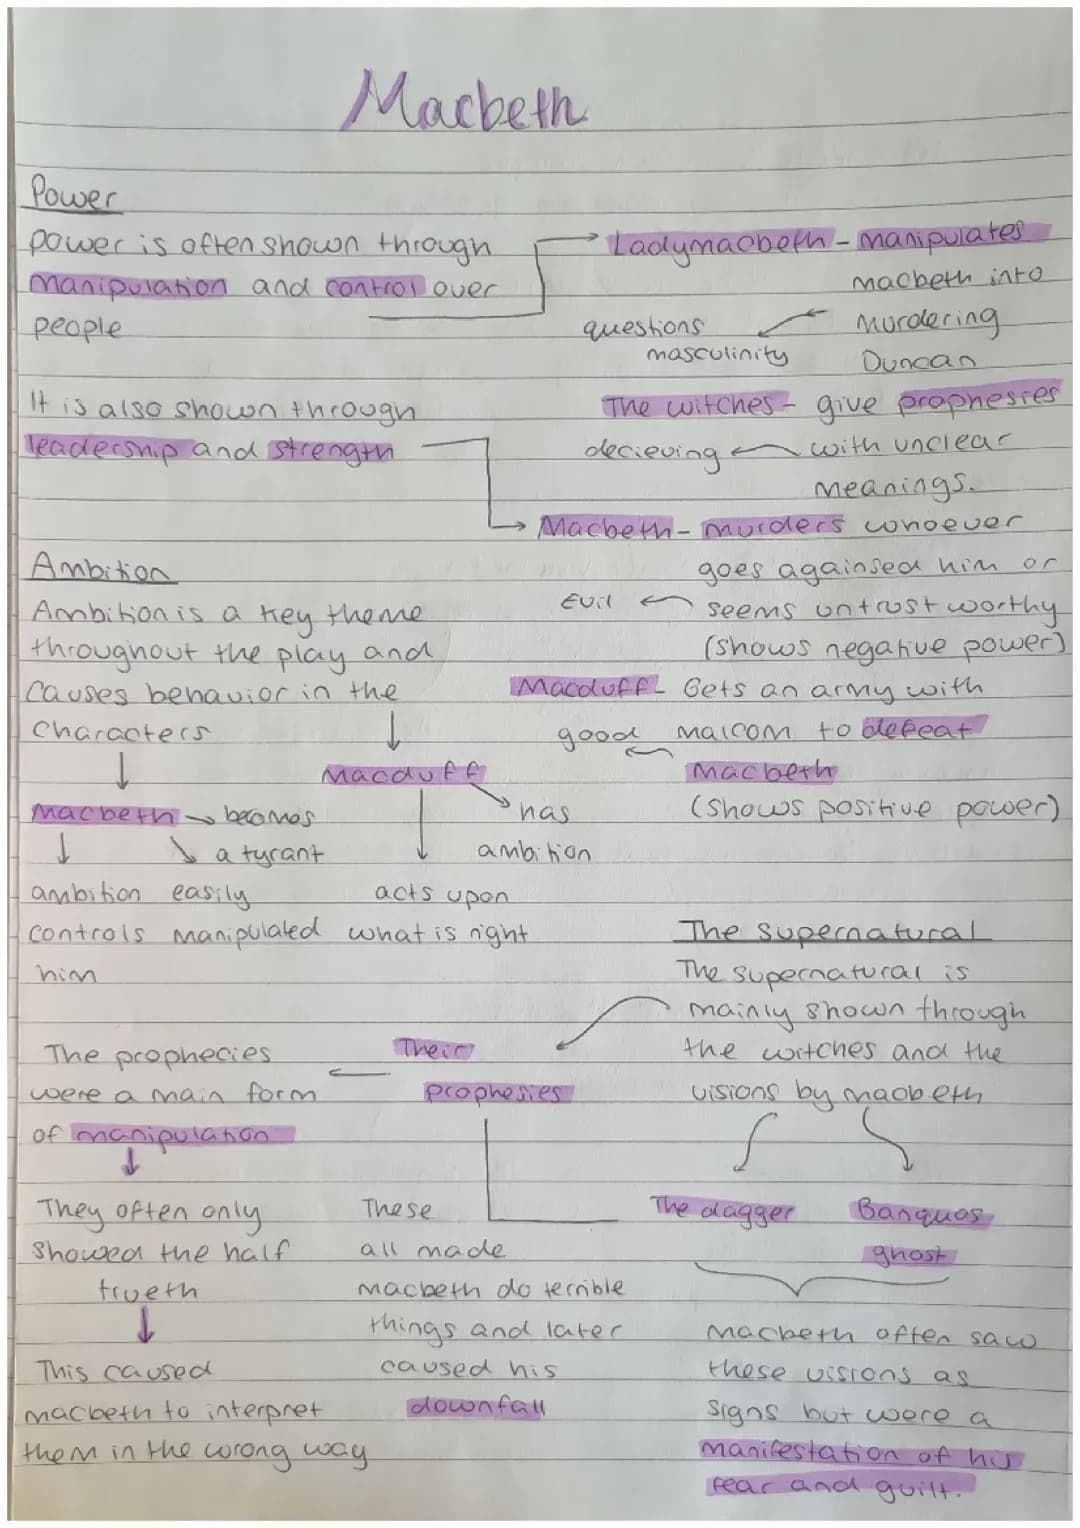 Macbeth
Power
power is often shown through
manipulation and control over
people
Ladymacbeth - manipulates
macbeth into
murdering
Duncan
questions
masculinity
It is also shown through
leadership and strength
The witches - give prophesies
with unclear
meanings.
decieving
Macbeth - murders whoever
goes againsed him or
seems untrustworthy
(shows negative power)
Evil
Macduff - Gets an army with
malcom to defeat
Macbeth
(shows positive power)
good
Ambition
Ambition is a key theme
throughout the play and
causes behavior in the
characters
Macbeth becomes
a tyrant
ambition
controls
him
easily
manipulated
Macduff
has
ambition
acts upon
what is right
The supernatural
The supernatural is
mainly shown through
the witches and the
visions by macbeth
Their
prophesies
The prophecies
were a main form
of manipulation
They often only
showed the half
trueth
This caused
macbeth to interpret
them in the wrong way
These
all made
macbeth do terrible
things and later
caused his
downfall
The dagger
Banquos
ghost
Macbeth often saw
these visions as
signs but were a
manifestation of his
fear and guilt.